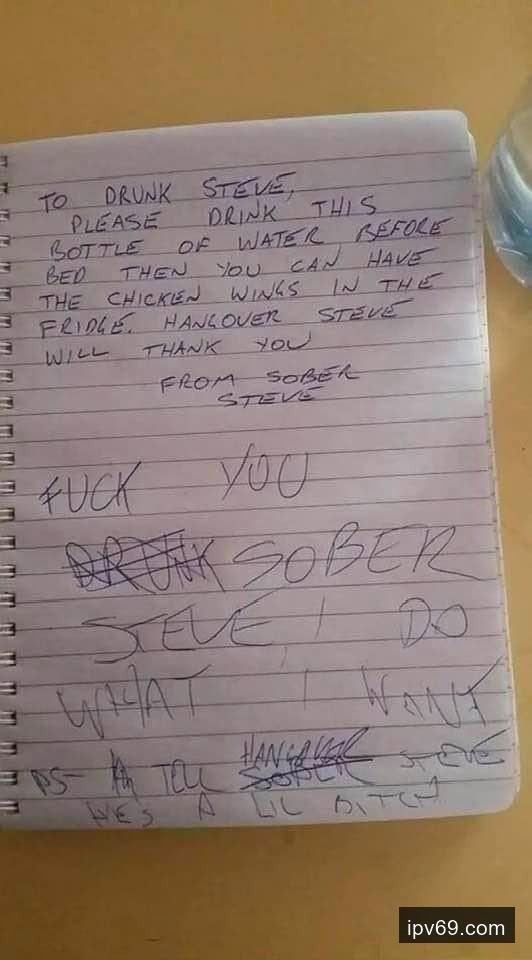 TO DRUNK STEVE,
PLEASE DRINK THIS
BOTTLE OF WATER BEFORE
BED THEN YOU CAN HAVE
THE CHICKEN WINGS IN THE
FRIDGE. HANGOVER STEVE
WILL THANK YOU
FROM SOBER
STEVE
FUCK YOU
DRUNK SOBER
STEVE I DO
WHAT I WANT
HANGOVER
PS- TELL SOBER STEVE
HES A LIL BITCH
ipv69.com